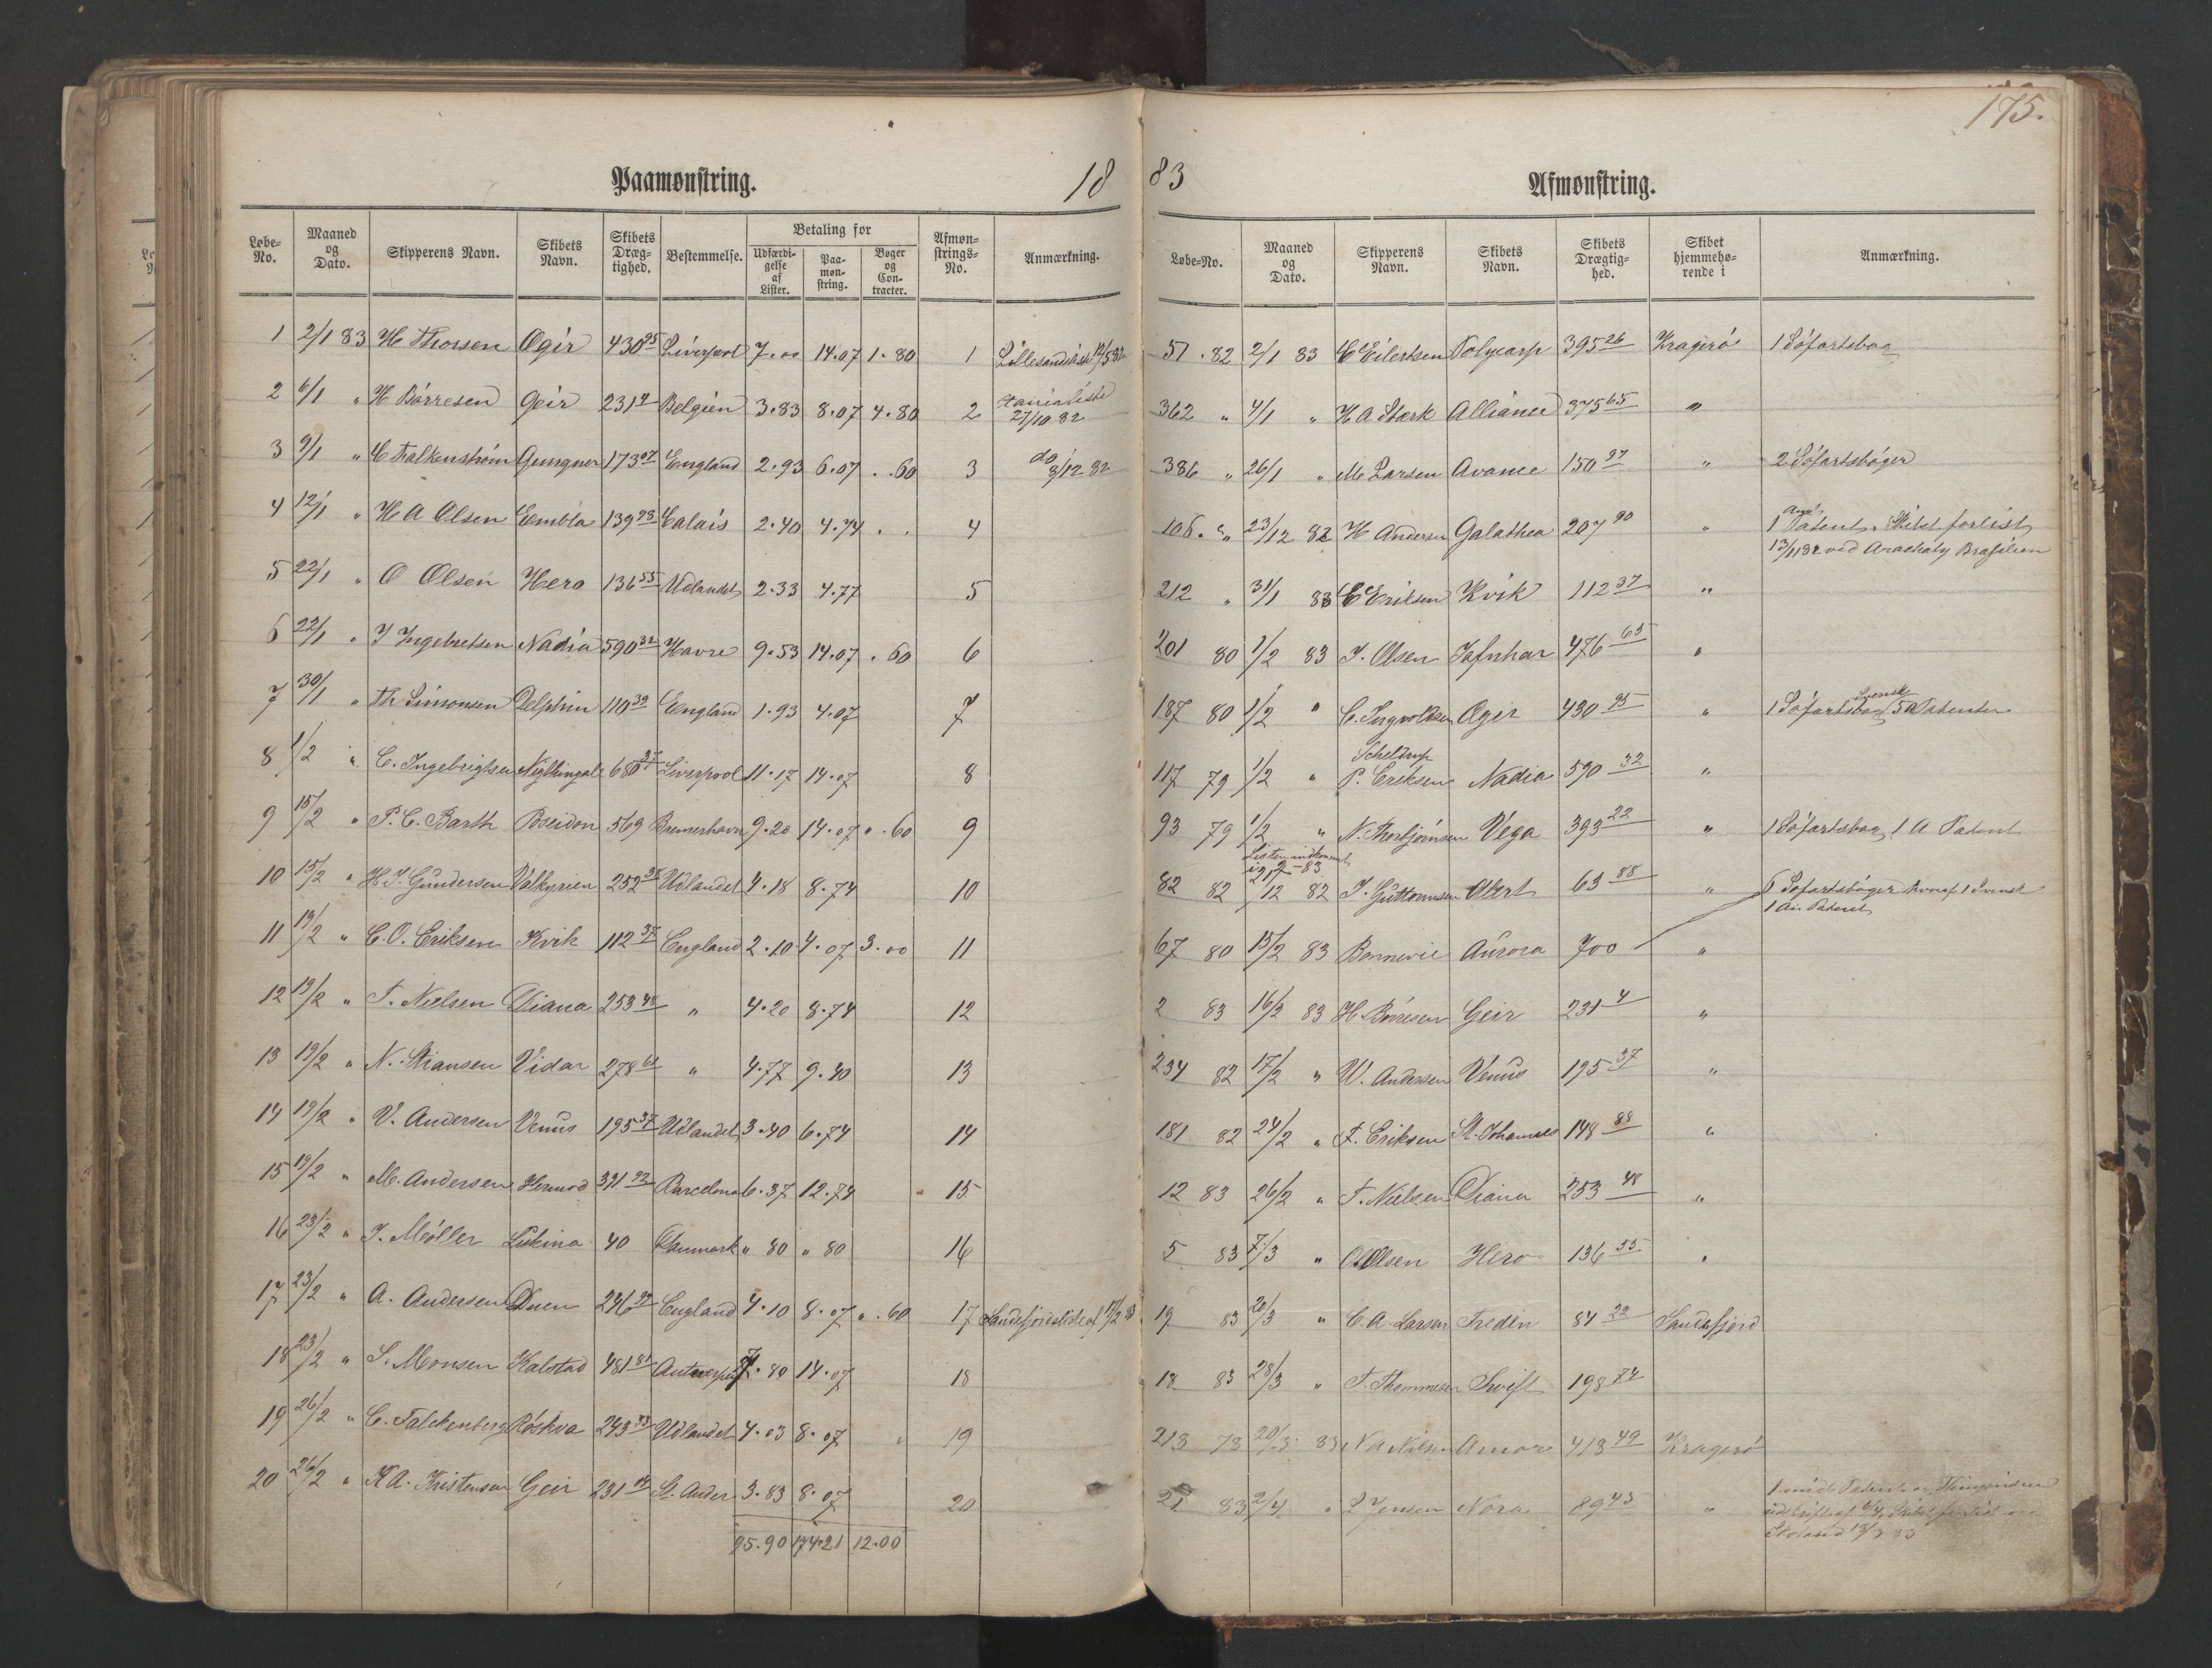 175.
Paamønstring. 18
83 Afmønstring.
Løbe-No. Maaned og Dato. Skipperens Navn. Skibets Navn. Skibets Dræg-tighed. Bestemmelse. Betaling for Udfærdi-gelse af Lister. Paa-møn-string. Bøger og Con-tracter. Afmøn-strings-No. Anmærkning.
1 2/1 83 H Thorsen Ægir 430 95 Liverpool 7.00 14.07 1.80 1
2 6/1 " H Børresen Geir 231 4 Belgien 3.83 8.07 4.80 2 27/10 82
3 9/1 " C Falkenstrøm Gungner 173 07 England 2.93 6.07 . .60 3 do 8/12 82
4 12/1 " H A Olsen Embla 139 98 Calais 2.40 4.74 . . 4
5 22/1 " O Olsen Hero 136 55 Udlandet 2.33 4.77 5
6 22/1 " J Ingebretsen Nadia 590 32 Havre 9.53 14.07 . 60 6
7 30/1 " Th Simonsen Delphin 110 39 England 1.93 4.07 7
8 1/2 " C. Ingebrigtsen Nightingale 680 37 Liverpool 11.17 14.07 8
9 15/2 " P. C. Barth Poseidon 569 Bremerhavn 9.20 14.07 " .60 9
10 15/2 " H. J. Gundersen Valkyrien 252 Udlandet 4.18 8.74 10
11 19/2 " C. O. Eriksen Kvik 112 37 England 2.10 4.07 3.00 11
12 19/2 " T. Nielsen Diana 253 48 " 4.20 8.74 12
13 19/2 " N. Stiansen Vidar 278 61 " 4.77 9.40 13
14 19/2 " V. Andersen Venus 195 37 Udlandet 3.40 6.74 14
15 19/2 " M. Andersen Hermod 391 92 Barcelona 6.37 12.74 15
16 23/2 " J. Møller 40 Danmark " 80 " 80 16
17 23/2 " A. Andersen Duen 246 England 4.10 8.07 " .60 17 Sandefjordsliste af 17/2 83
18 23/2 " S. Monsen Kalstad 481 81 Antwerpen 7.80 14.07 18
19 26/2 " C. Falckenberg Røskva 243 33 Udlandet 4.03 8.07 " 19
20 26/2 " K A. Kristensen Geir 231 04 St. Ander 3.83 8.07 20
95.90 174.21 12.00
Løbe-No. Maaned og Dato. Skipperens Navn. Skibets Navn. Skibets Drægtig-hed. Skibet hjemmehø-rende i Anmærkning.
51 . 82 2/1 83 C Eilertsen Polycarp 395 26 Kragerø 1 Søfartsbog
362 " 4/1 " H A Stærk Alliance 375 65 "
386 " 26/1 " M Larsen Avance 150 97 " 2 Søfartsbøger
106. " 23/12 82 H Andersen Galathea 207 90 " 1 Patent. Skibet forlist
13/11 82 ved Arachaty Brasilien
212 " 31/1 83 C Eriksen Kvik 112 37 "
201 80 1/2 83 J. Olsen Jafnhar 476 65 "
187 80 1/2 " C. Ingvoldsen Ægir 430 95 " 1 Søfartsbog svensk 5 A Patenter
117 79 1/2 " Scheldrup P. Eriksen Nadia 590 32 "
93 79 1/2 " N. Thorbjørnsen Vega 393 22 " 1 Søfartsbog, 1 A Patent
Listen indkommet i 21/2-83
82 82 /12 82 J. Guttormsen Albert 63 88 " 6 Søfartsbøger hvoraf 1 svensk
1 Patent
67 80 15/2 83 Bonnevie Aurora 700 "
2 83 16/2 83 H Børresen Geir 231 4 "
234 82 17/2 " W. Andersen Venus 195 37 "
181 82 24/2 " F. Eriksen St. Johannes 148 "
12 83 26/2 " T. Nielsen Diana 253 48 "
5 83 7/3 " O Olsen Hero 136 55 "
19 83 20/3 " C. A. Larsen Fredin 84 22 Sandefjord
18 83 28/3 " T. Thommesen Swift 198 74
213 78 20/3 83 N A Nilsen Amor 413 49 Kragerø
21 83 2/4 " L Jensen Nora 89 43 "